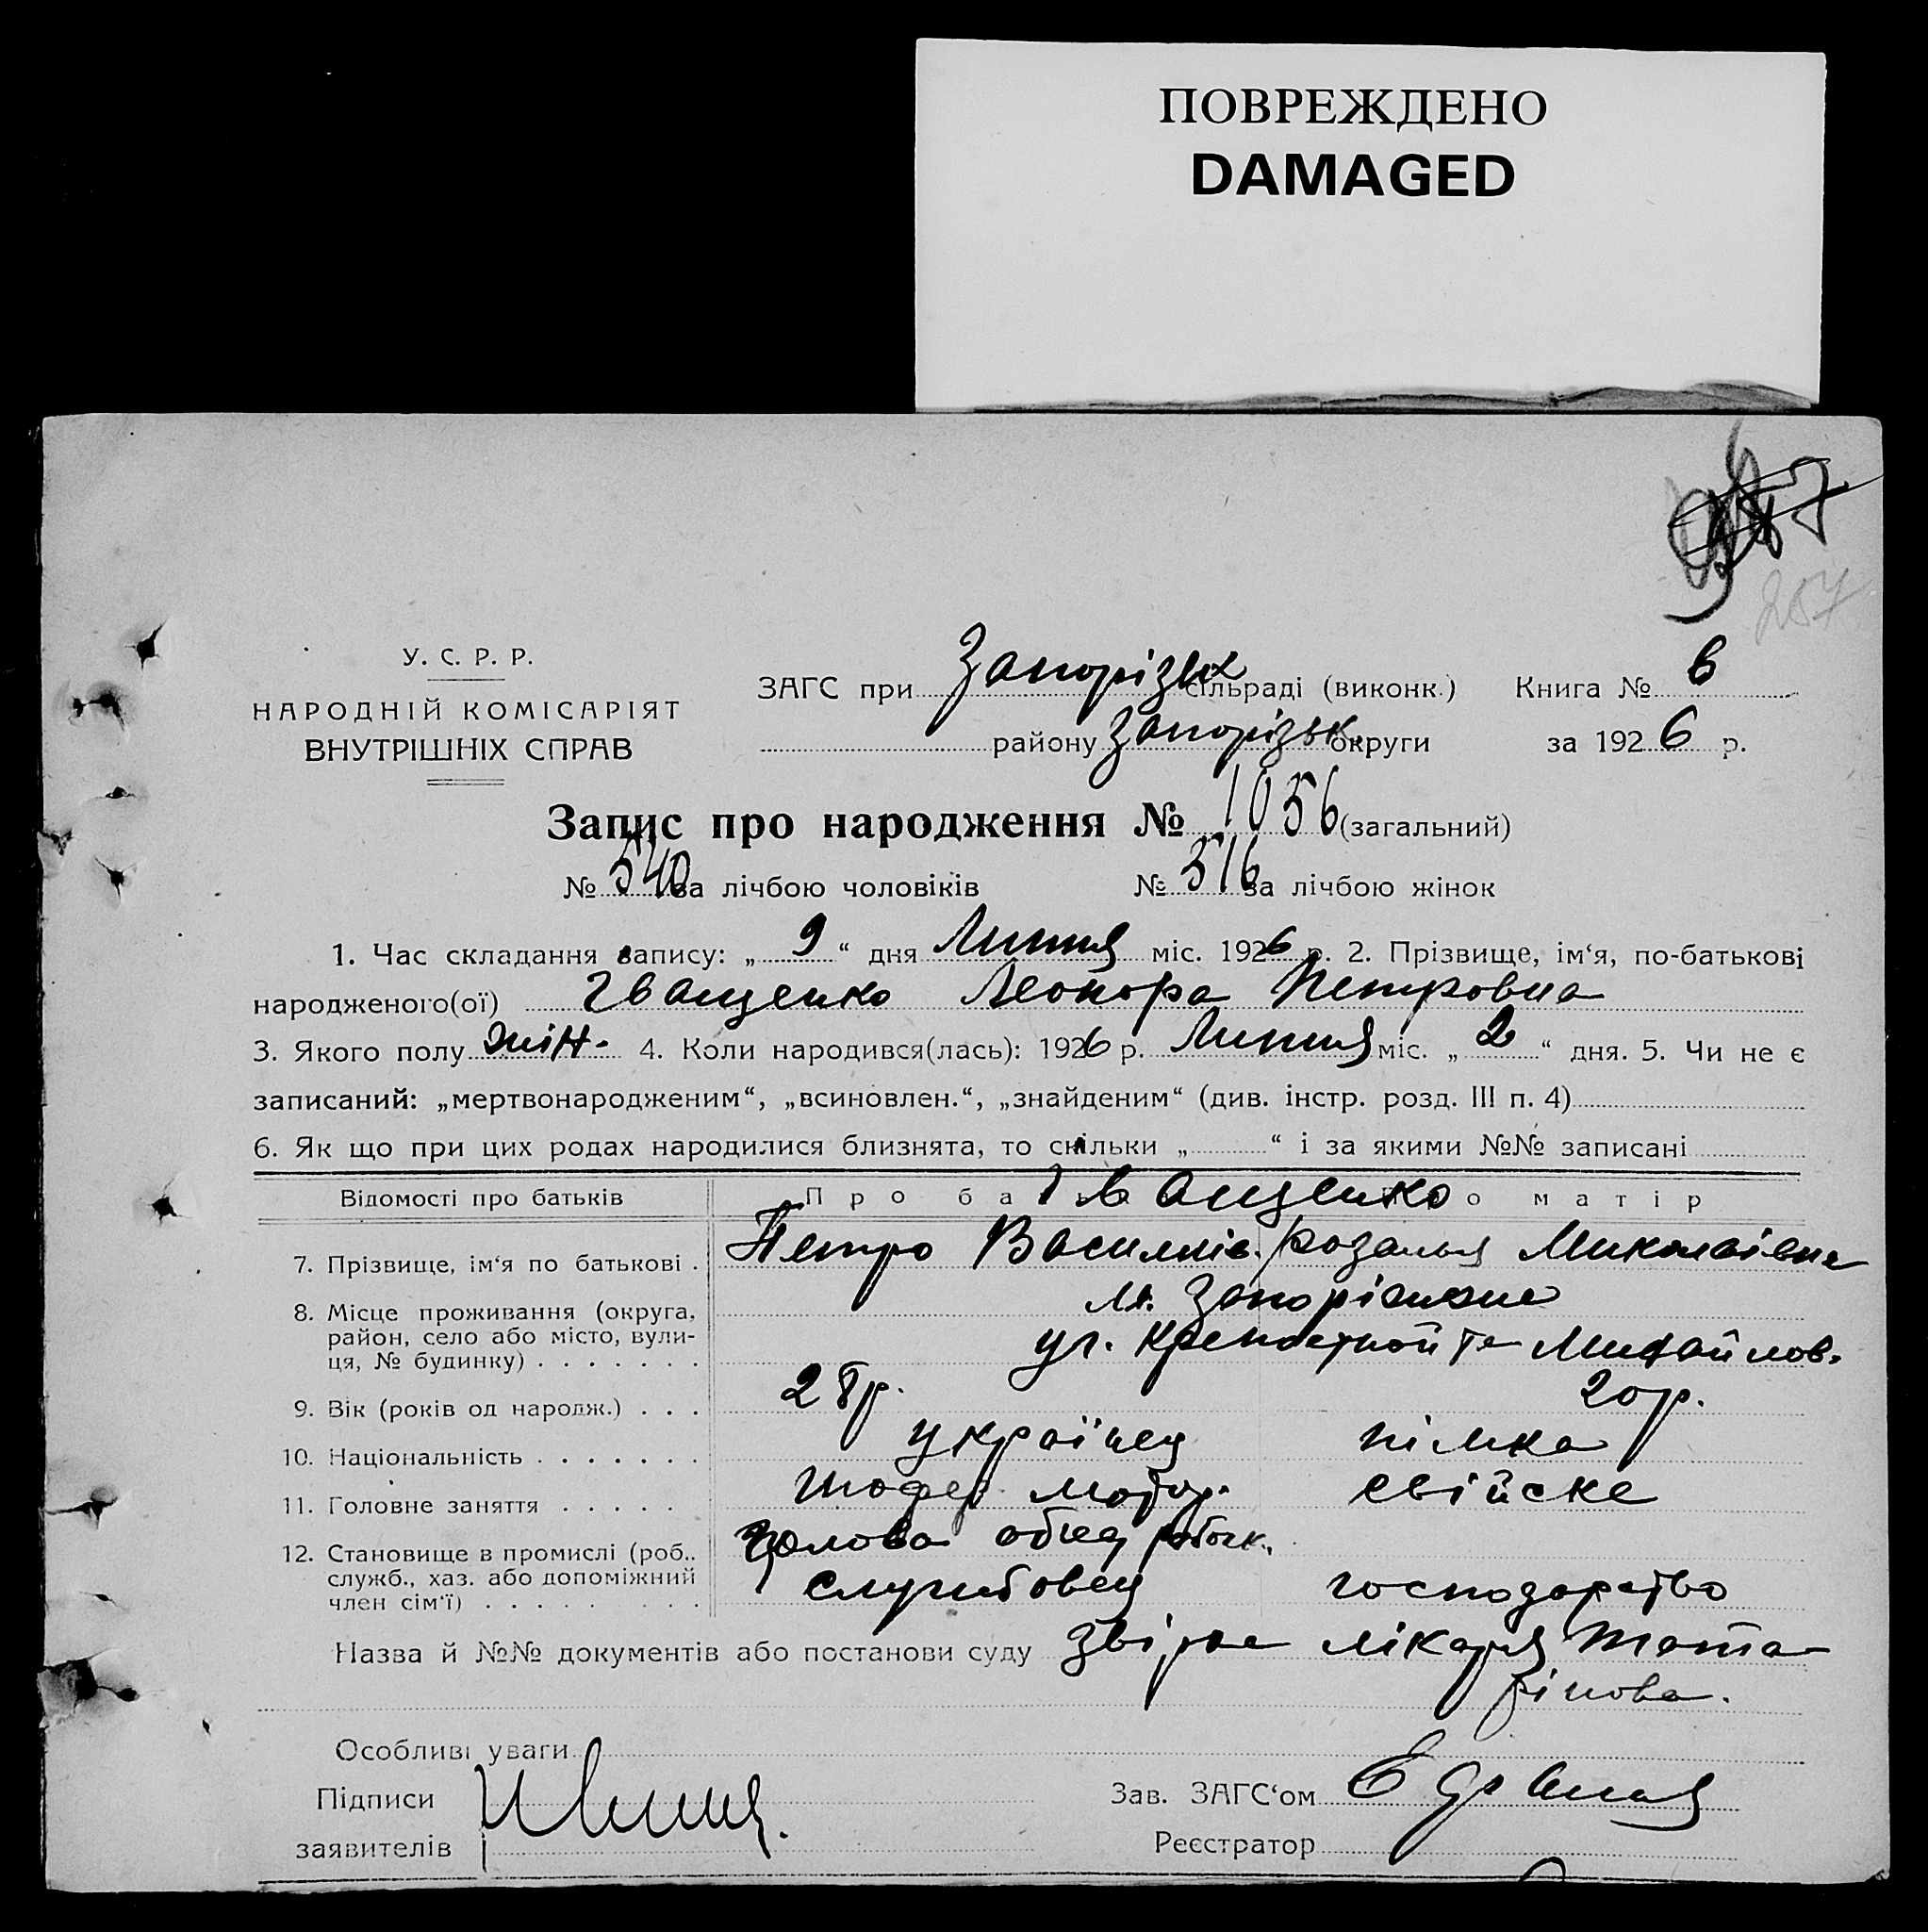 ПОВРЕЖДЕНО
DAMAGED
267
У. С. Р. Р.
НАРОДНІЙ КОМІСАРІЯТ
ВНУТРІШНІХ СПРАВ
ЗАГС при Запорізьк сільраді (виконк.) Книга № 6
району Запорізьк. округи за 1926 р.
Запис про народження № 1056 (загальний)
№ 540 за лічбою чоловіків № 516 за лічбою жінок
1. Час складання запису: „ 9 “ дня Липня міс. 1926 р. 2. Прізвище, ім‘я, по-батькові
народженого(ої) Іващенко Леонора Петровна
3. Якого полу жін. 4. Коли народився(лась): 1926 р. Липня міс. „ 2 “ дня. 5. Чи не є
записаний: „мертвонародженим“, „всиновлен.“, „знайденим“ (див. інстр. розд. III п. 4)
6. Як що при цих родах народилися близнята, то скільки „ “ і за якими №№ записані
Відомості про батьків Про ба Іващенко о матір
7. Прізвище, ім‘я по батькові . Петро Василків. Розалья Миколаівна
8. Місце проживання (округа, м. Запоріжжие
район, село або місто, вули-
ця, № будинку) . . . . . . . уг. Крепостной та Михайлов.
9. Вік (років од народж.) . . . 28р. 20р.
10. Національність . . . . . . . українец німка
11. Головне заняття . . . . . шофер мотор. свійске
12. Становище в промислі (роб.. Голова обєд робочк.
служб., хаз. або допоміжний службовец господарство
член сім‘ї) . . . . . . . . .
Назва й №№ документів або постанови суду Звірка лікаря Тата-
рінова.
Особливі уваги
Підписи Зав. ЗАГС‘ом
заявителів Реєстратор